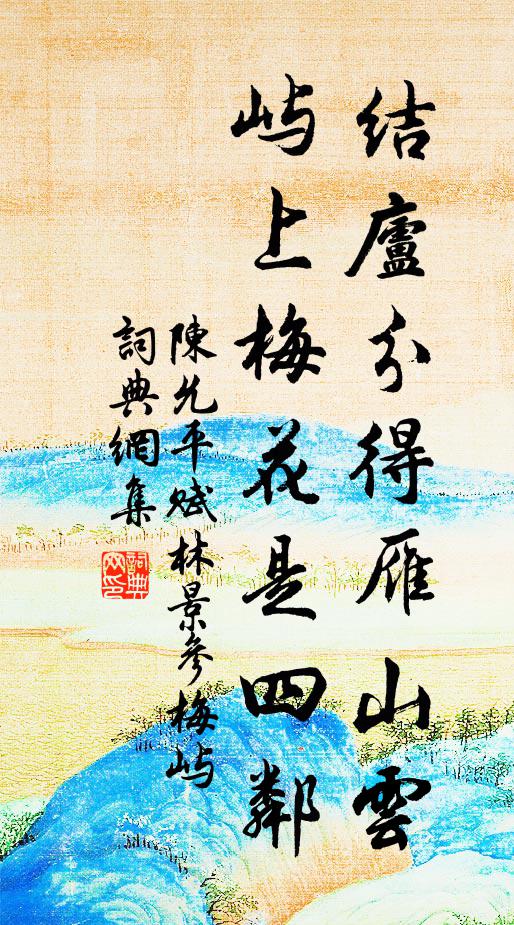 結廬分得雁山雲
嶼上梅花是四鄰
陳允平賦林景參梅嶼
詞典網集
詞典